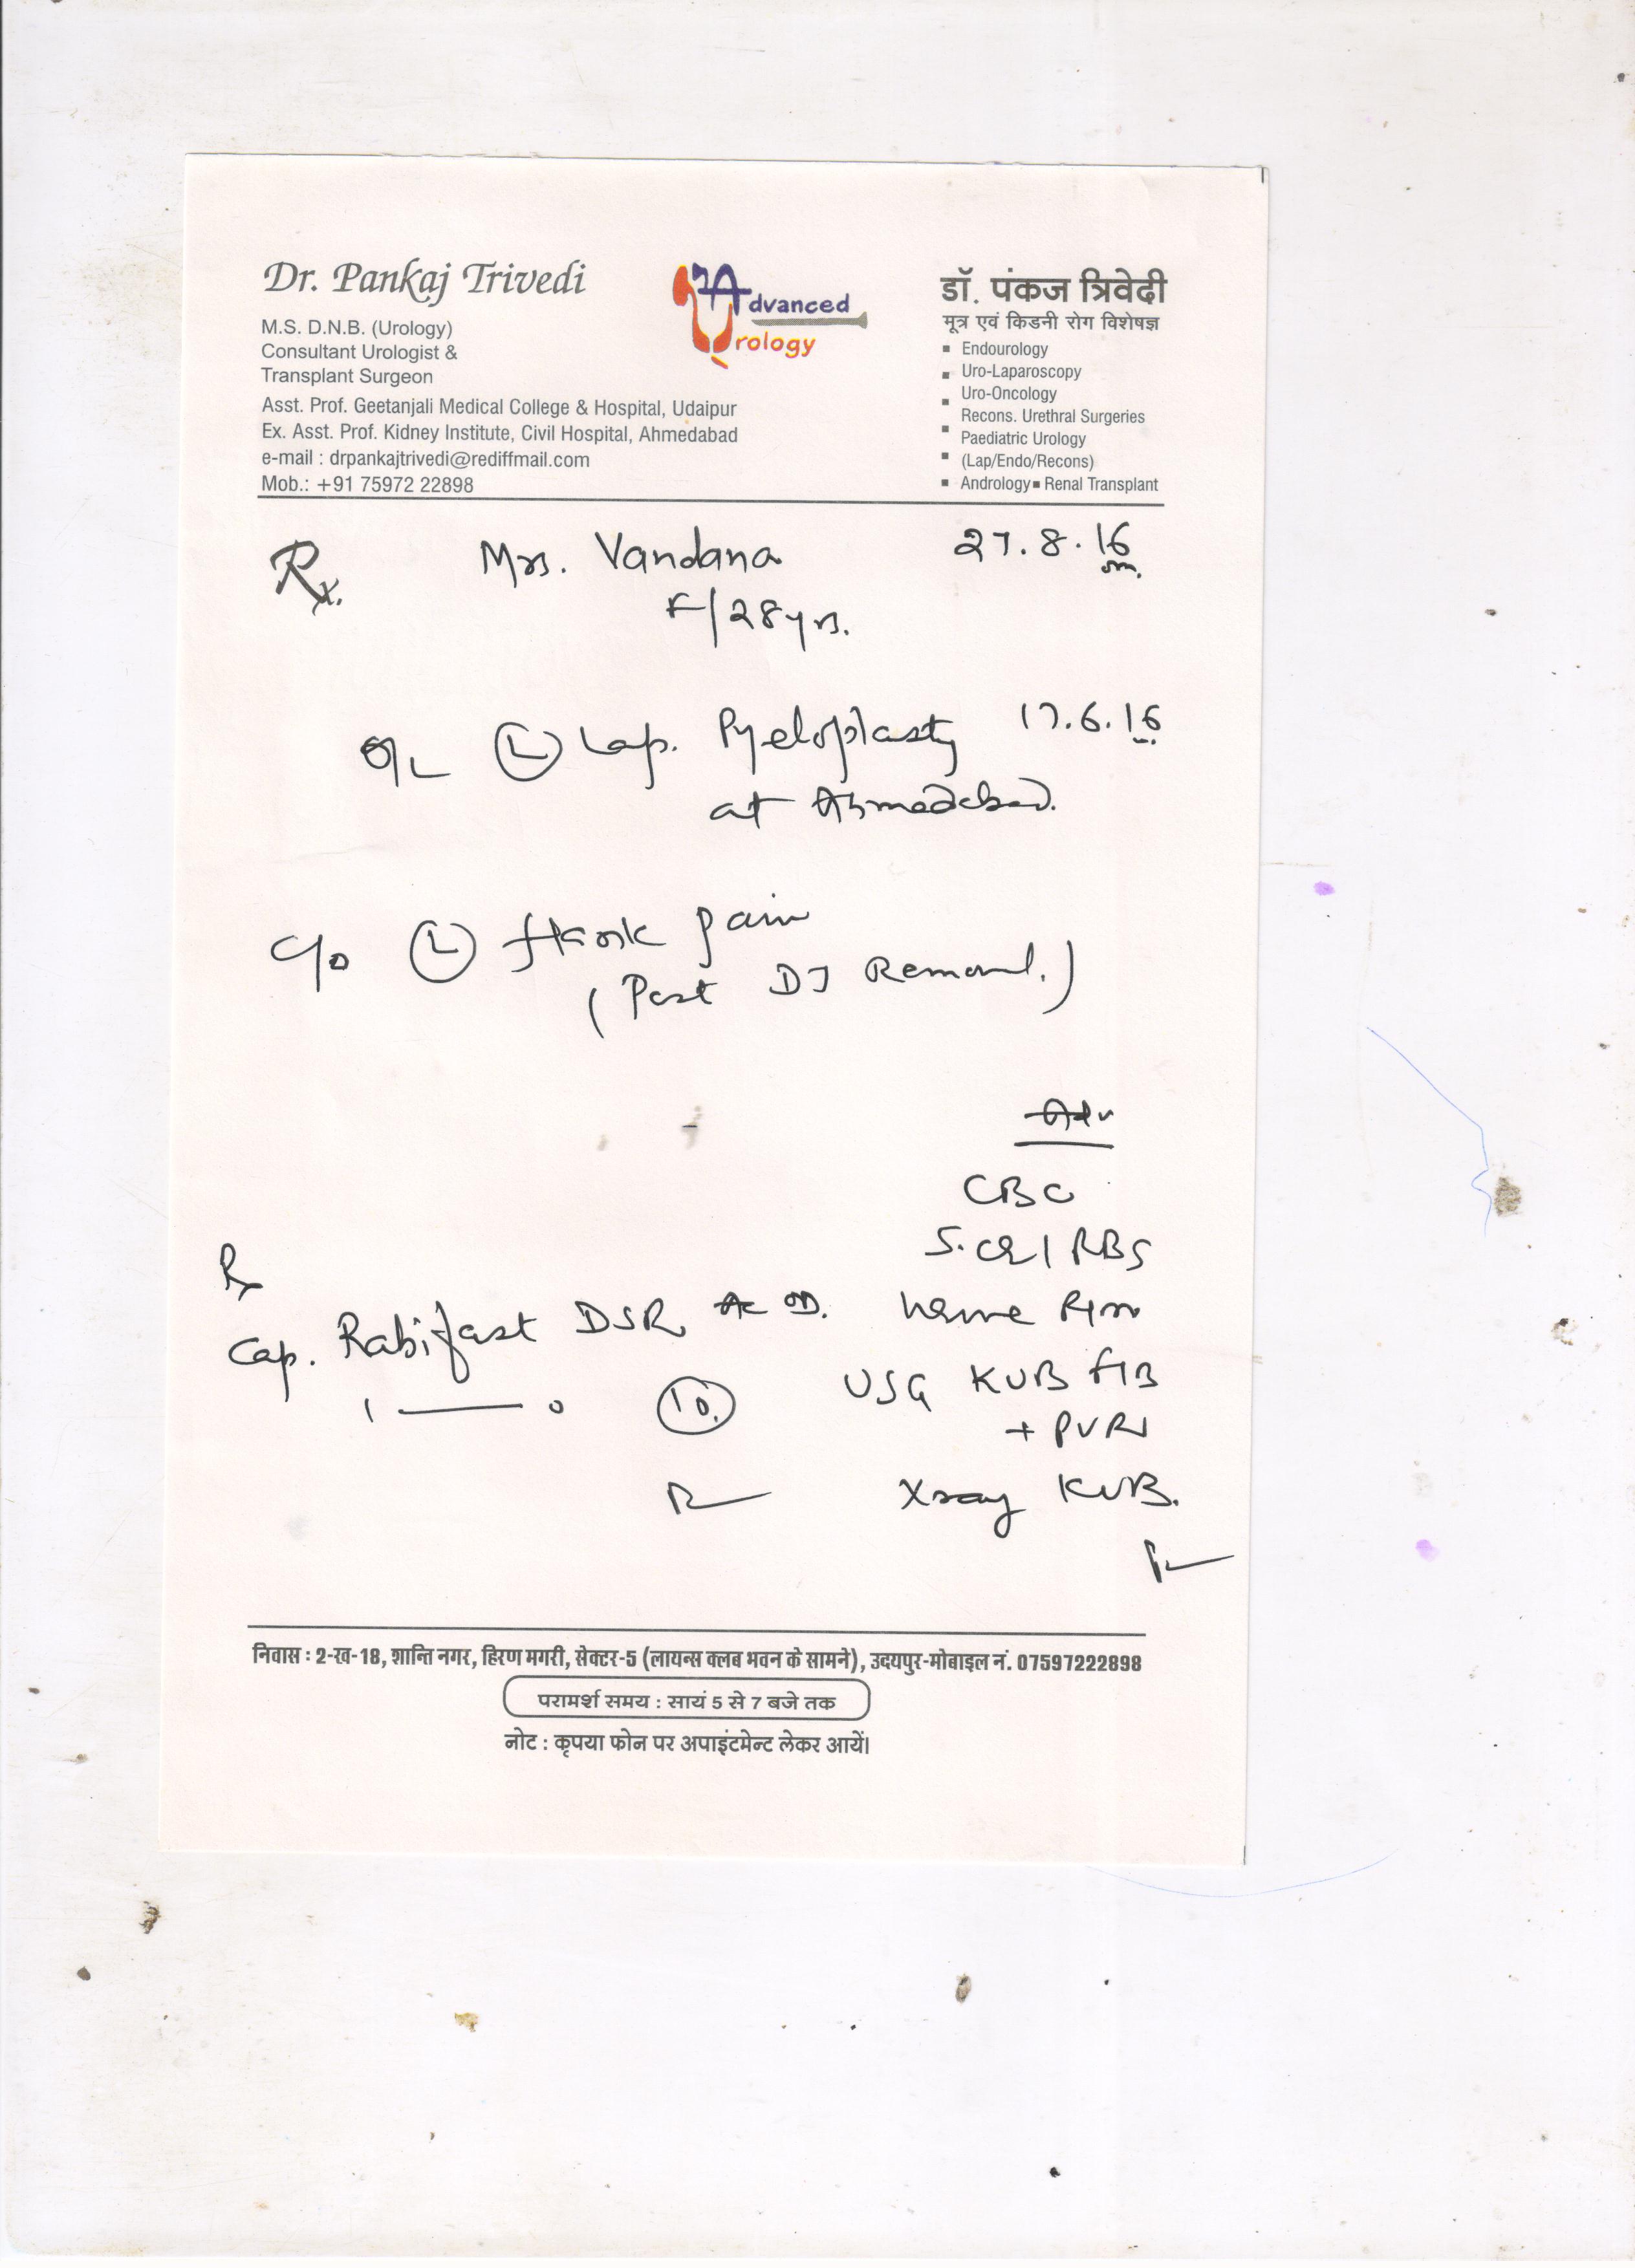 Dr. Pankaj Trivedi
M.S. D.N.B. (Urology)
Consultant Urologist &
Transplant Surgeon
Asst. Prof. Geetanjali Medical College & Hospital, Udaipur
Ex. Asst. Prof. Kidney Institute, Civil Hospital, Ahmedabad
e-mail : drpankajtrivedi@rediffmail.com
Mob.: +91 75972 22898
Advanced
Urology
डॉ. पंकज त्रिवेदी
मूत्र एवं किडनी रोग विशेषज्ञ
▪ Endourology
▪ Uro-Laparoscopy
▪ Uro-Oncology
▪ Recons. Urethral Surgeries
▪ Paediatric Urology
▪ (Lap/Endo/Recons)
▪ Andrology ▪ Renal Transplant
Rx. Mrs. Vandana 27.8.16
F/28yrs.
(L) Lap. Pyeloplasty 17.6.16
at Ahmedabad.
c/o (L) flank pain
(Post DJ Removal.)
Adv
CBC
S.cr/RBS
Urine R/m
USG KUB
+ PVR
Xray KUB.
Rx
Cap. Rabifast DSR AC OD.
1 — 0 (10.)
निवास : 2-ख-18, शान्ति नगर, हिरण मगरी, सेक्टर-5 (लायन्स क्लब भवन के सामने), उदयपुर-मोबाइल नं. 07597222898
परामर्श समय : सायं 5 से 7 बजे तक
नोट : कृपया फोन पर अपाइंटमेन्ट लेकर आयें।